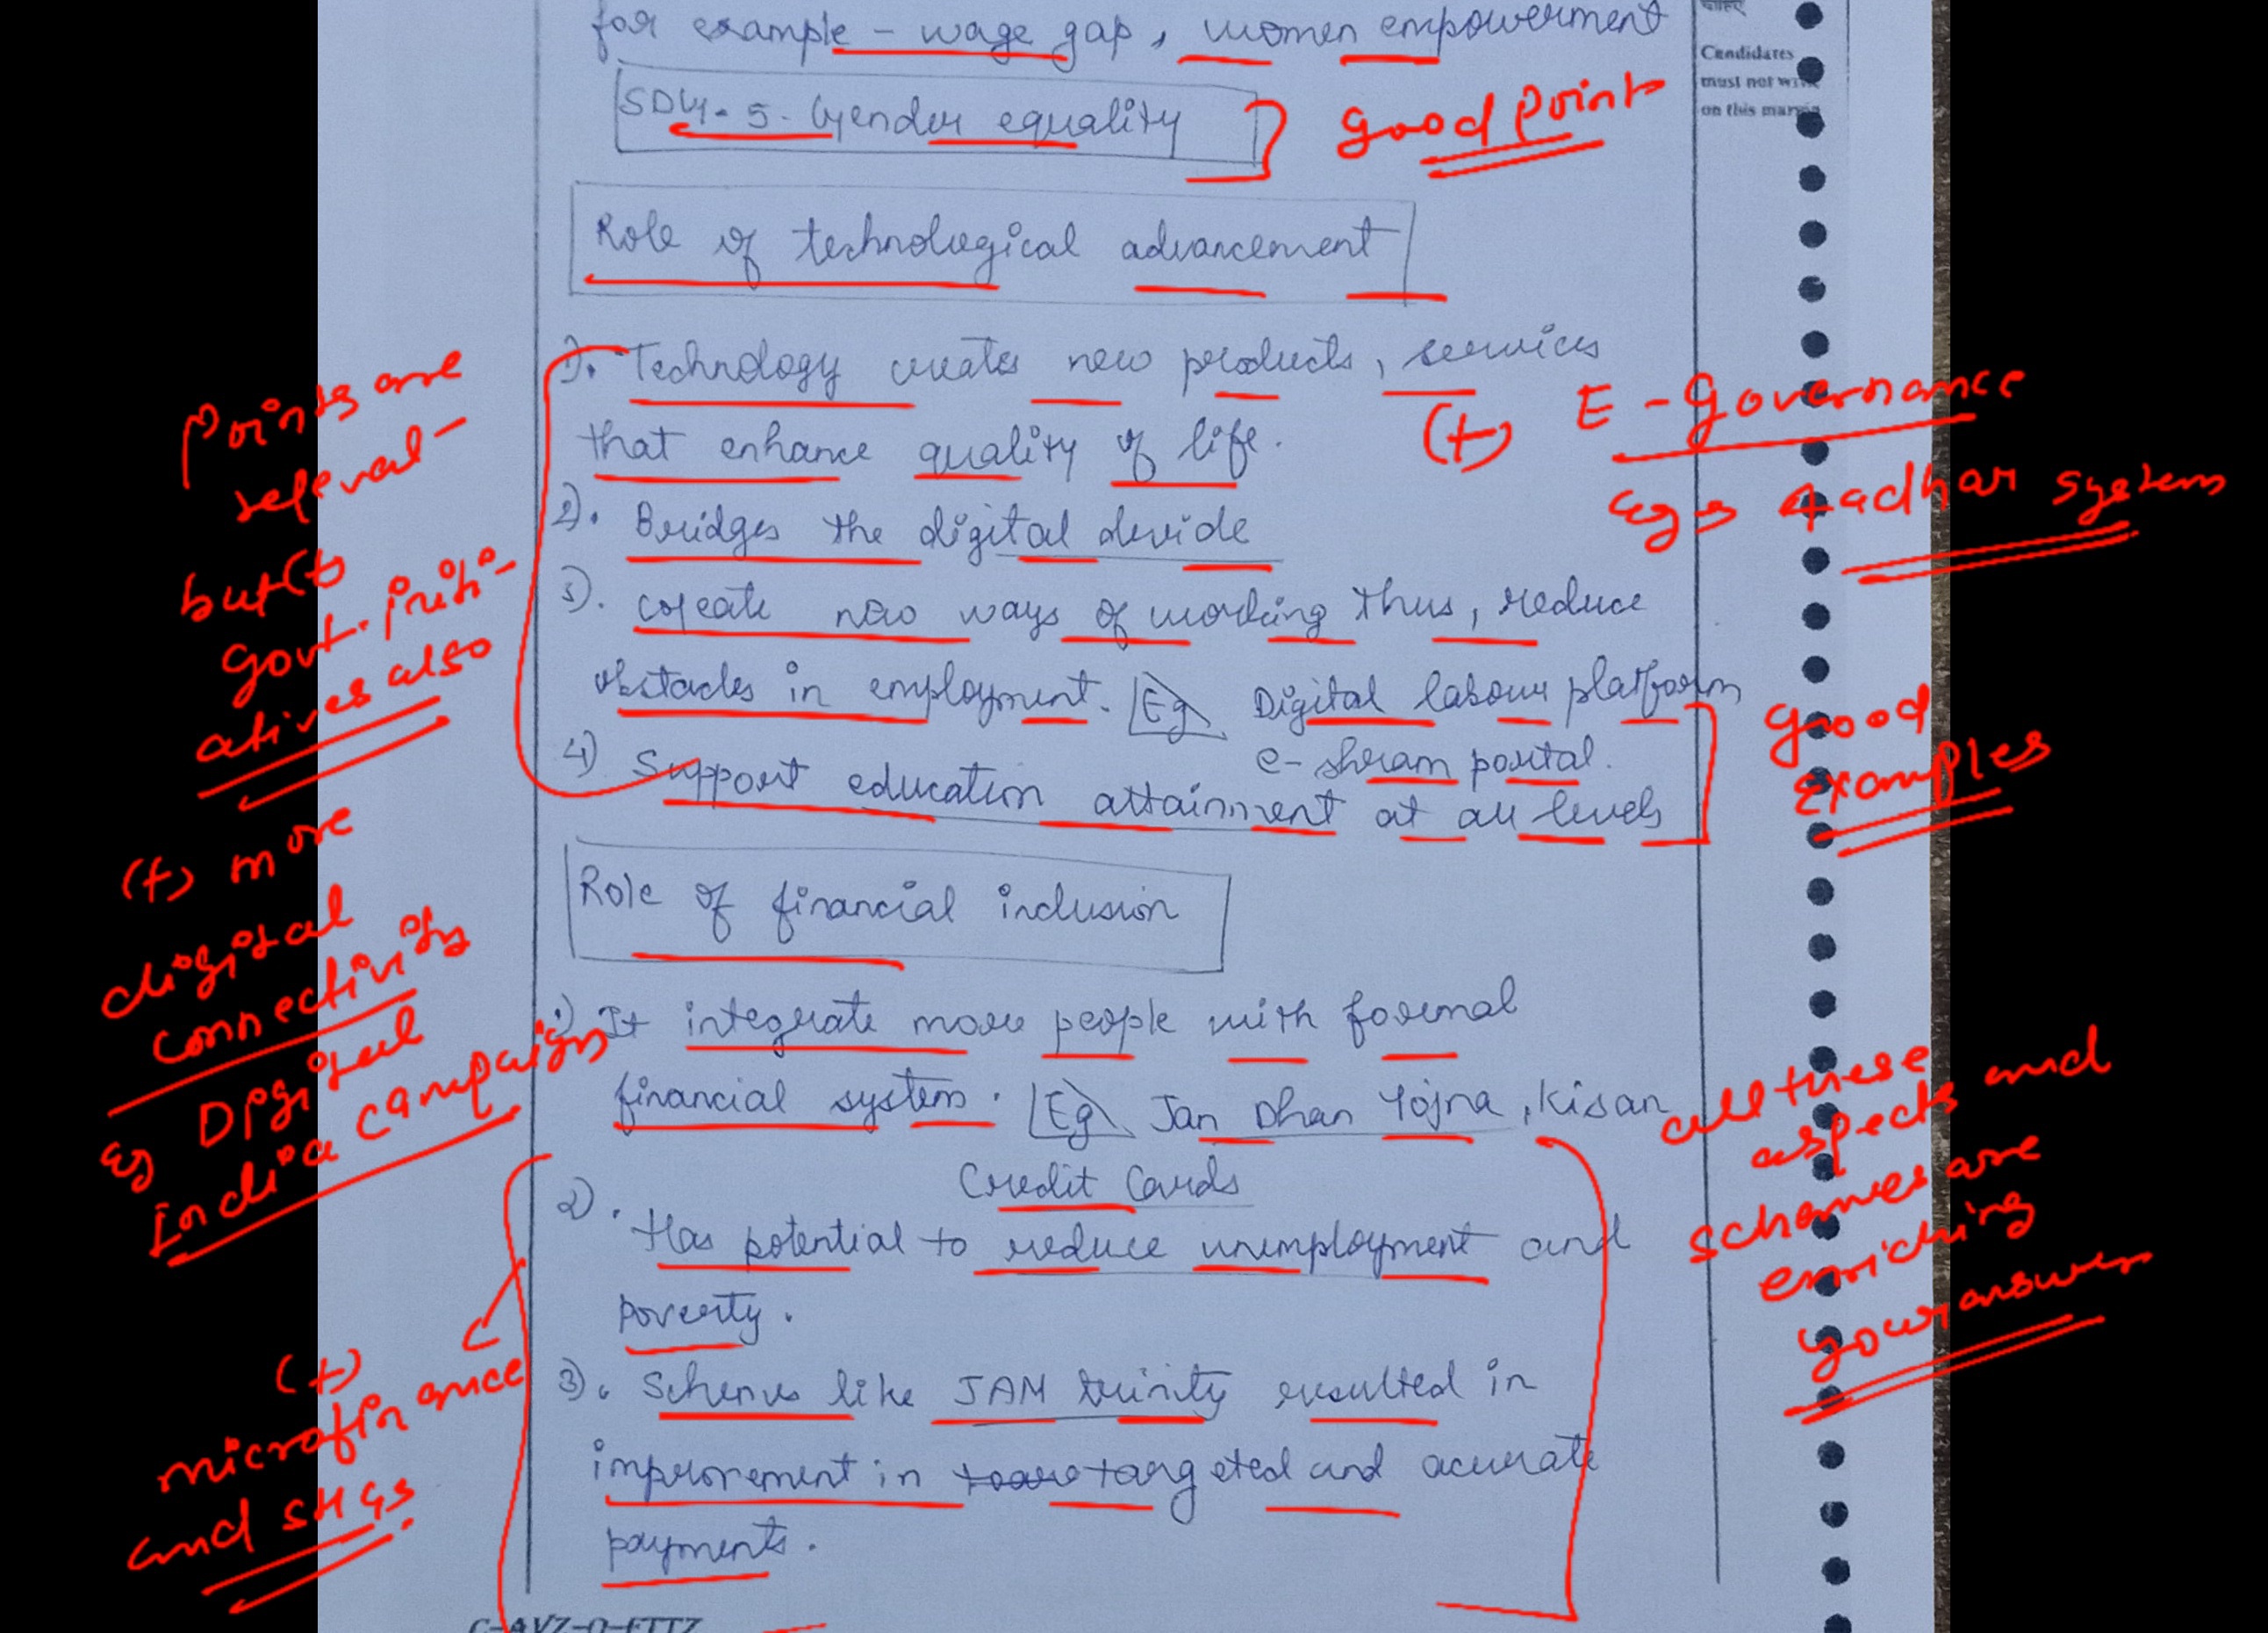 for example - wage gap, women empowerment
Candidates
must not write
on this margin
SDG. 5. Gender equality
Good point
Role of technological advancement
1). Technology creates new products, services
that enhance quality of life.
(+) E-Governance
Eg → Aadhar system
2). Bridges the digital devide
3). create new ways of working thus, reduce
obstacles in employment. Eg Digital labour platform
e-shram portal.
4) Support education attainment at all levels
Points are
releval-
but (+)
govt. initi-
atives also
Good
Examples
(+) more
digital
connectivity
Eg Digital
India campaign
Role of financial inclusion
1) It integrate more people with formal
financial system. Eg Jan Dhan Yojna, Kisan
Credit Cards
2). Has potential to reduce unemployment and
poverty.
3). Schemes like JAM trinity resulted in
improvement in targeted and accurate
payments.
all these
aspects and
schemes are
enriching
your answer
(+)
microfinance
and SHGs